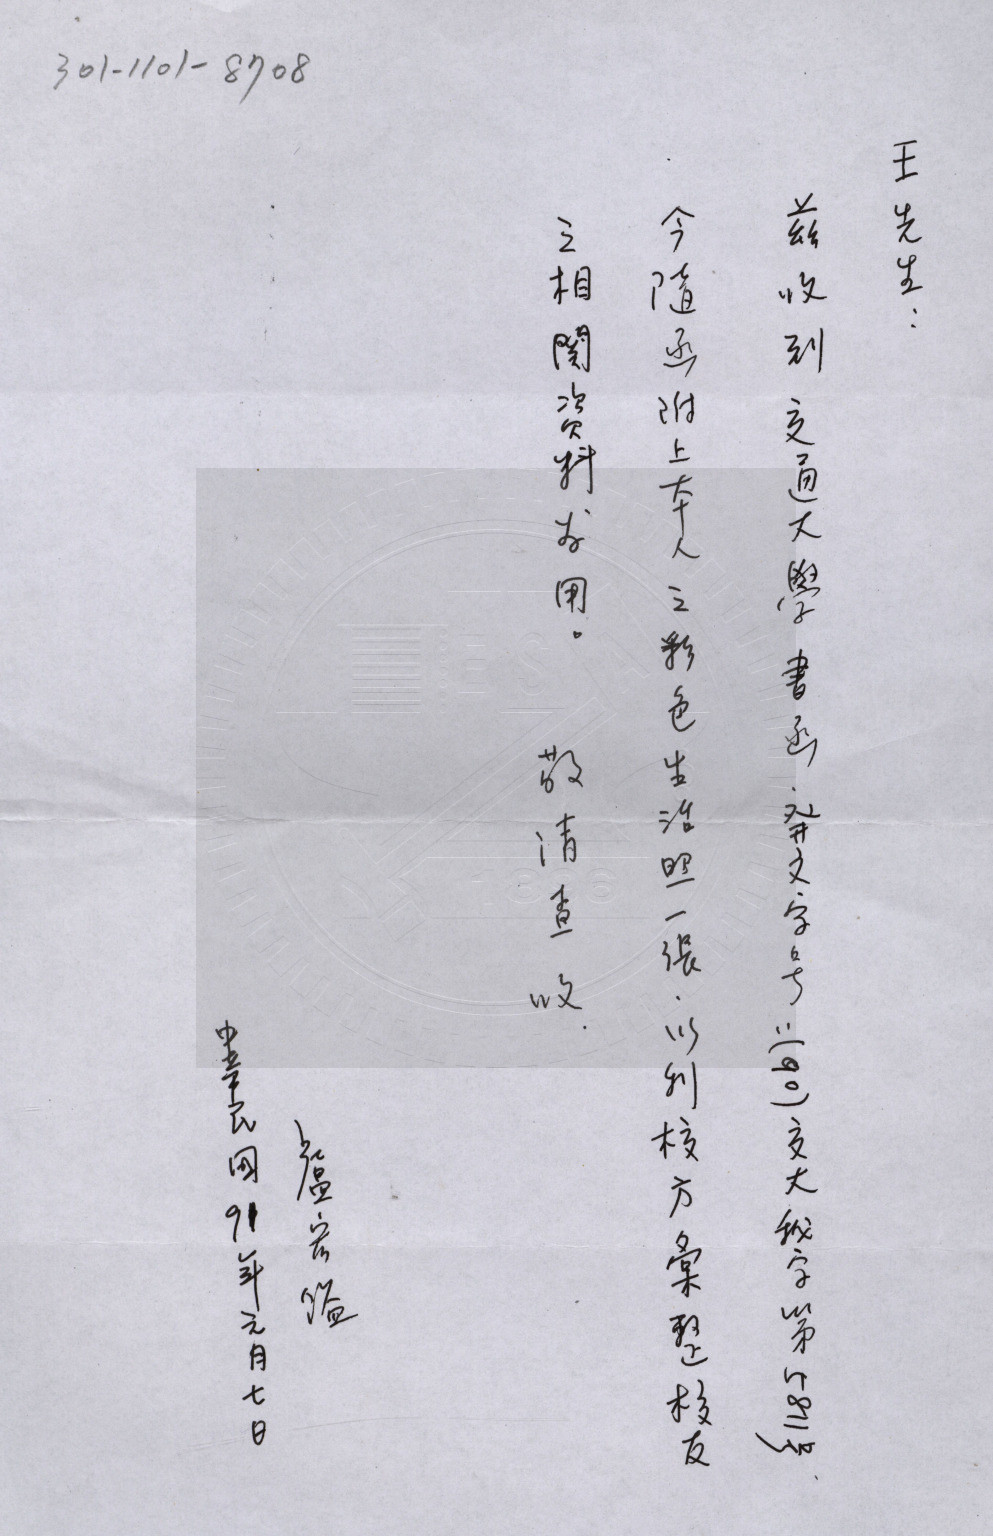 301-1101-8708
王先生：
茲收到交通大學書函.發文字号：(90)交大秘字第5811号).
今隨函附上本人之彩色生活照一張.以利校方彙整校友
之相關資料為用。
敬請查收.
盧宏鎰
中華民國91年元月七日
1896